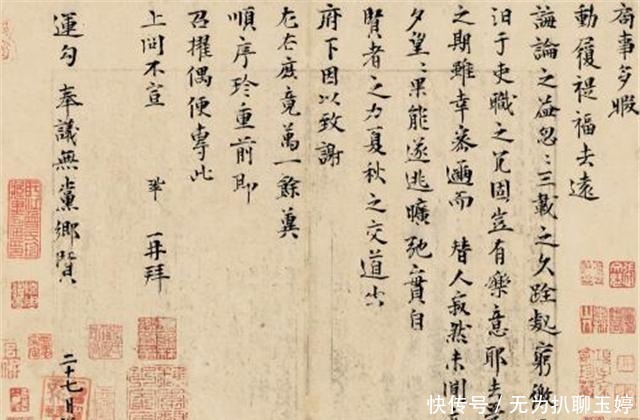 局事多暇
動履禔福去遠
誨論之益忽〻三載之久跧處窮徼
汩于吏職之冗固豈有樂意耶去
之期雖幸密邇而 替人寂然未聞
夕望〻果能遂逃曠弛實自
賢者之力夏秋之交道出
府下因以致謝
左右庶竟萬一餘冀
順序珍重前即
召擢偶便專此
上問不宣 鞏 再拜
運勾 奉議無黨鄉賢 二十七日
快传号／无为扒聊玉婷